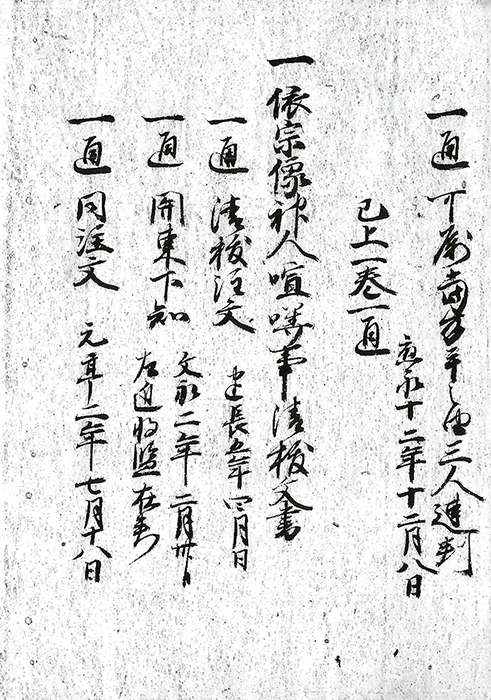 一通 可属当方平之由三人連判
應永十二年十二月八日
已上一巻一通
一依宗像神人喧嘩事清祓文書
一通 清祓注文 建長五年四月日
一通 関東下知 文永二年二月卅日
左近将監在判
一通 同注文 元亨二年七月十八日